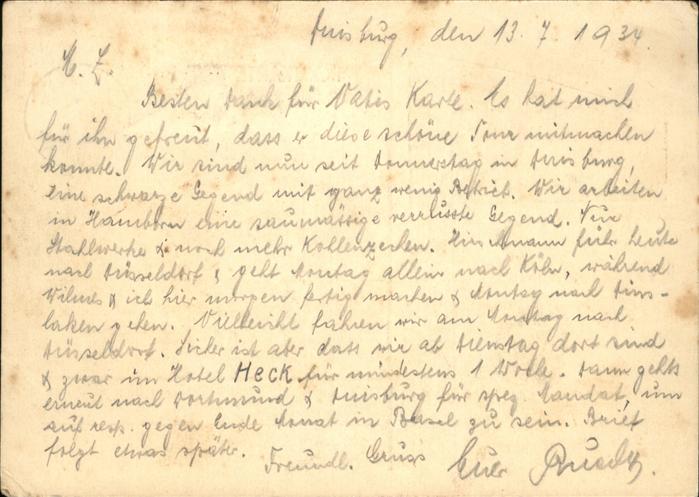 Duisburg, den 13. 7. 1934.
M. L.
Besten Dank für Vatis Karte. Es hat mich
für ihn gefreut, dass er diese schöne Tour mitmachen
konnte. Wir sind nun seit Donnerstag in Duisburg,
eine schwarze Gegend mit ganz wenig Betrieb. Wir arbeiten
in Hamborn eine saumässige verrusste Gegend. Nur
Stahlwerke & noch mehr Kohlenzechen. fuhr heute
nach Düsseldorf & geht Montag allein nach Köln, während
& ich hier morgen fertig machen & Montag nach Dins-
laken gehen. Vielleicht fahren wir am Montag nach
Düsseldorf. Sicher ist aber dass wir ab Dienstag dort sind
& zwar im Hotel Heck für mindestens 1 Woche. Dann gehts
erneut nach Dortmund & Duisburg für spez. Mandat, um
auf resp. gegen Ende Monat in Basel zu sein. Brief
folgt etwas später.
Freundl. Gruss Euer Ruedy.